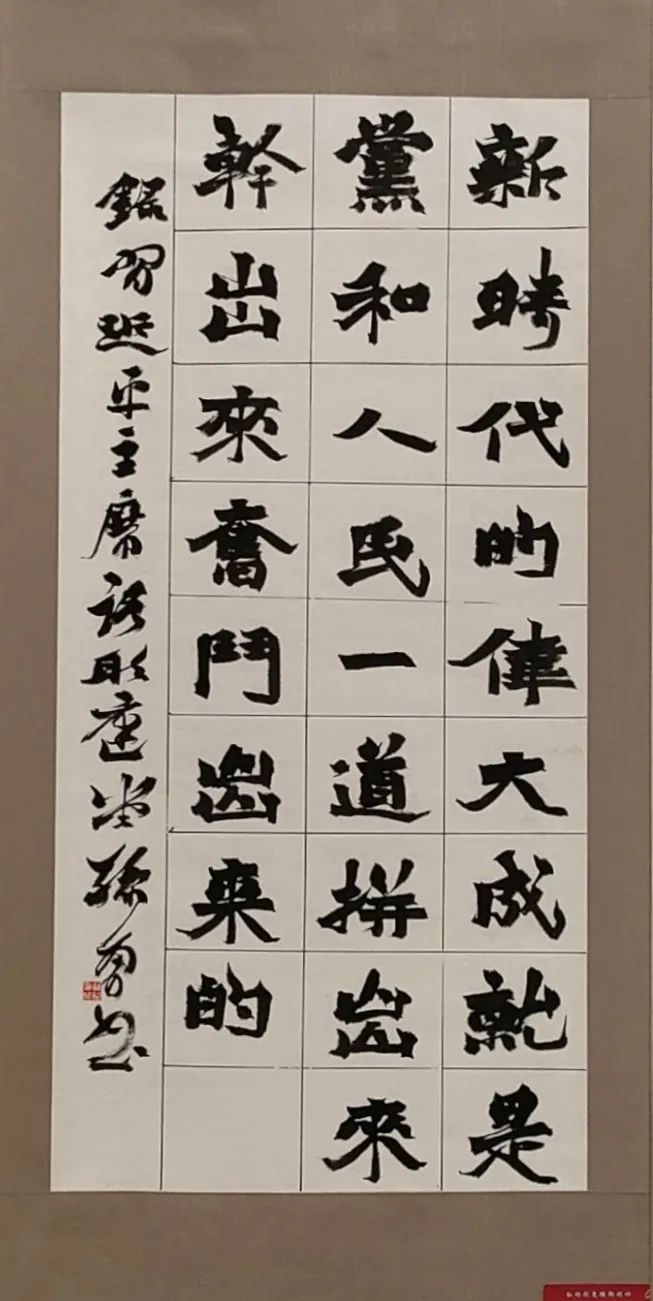 新時代的偉大成就是
黨和人民一道拼出來
幹出來奮鬥出來的
錄習近平主席語 堂 孫勇書